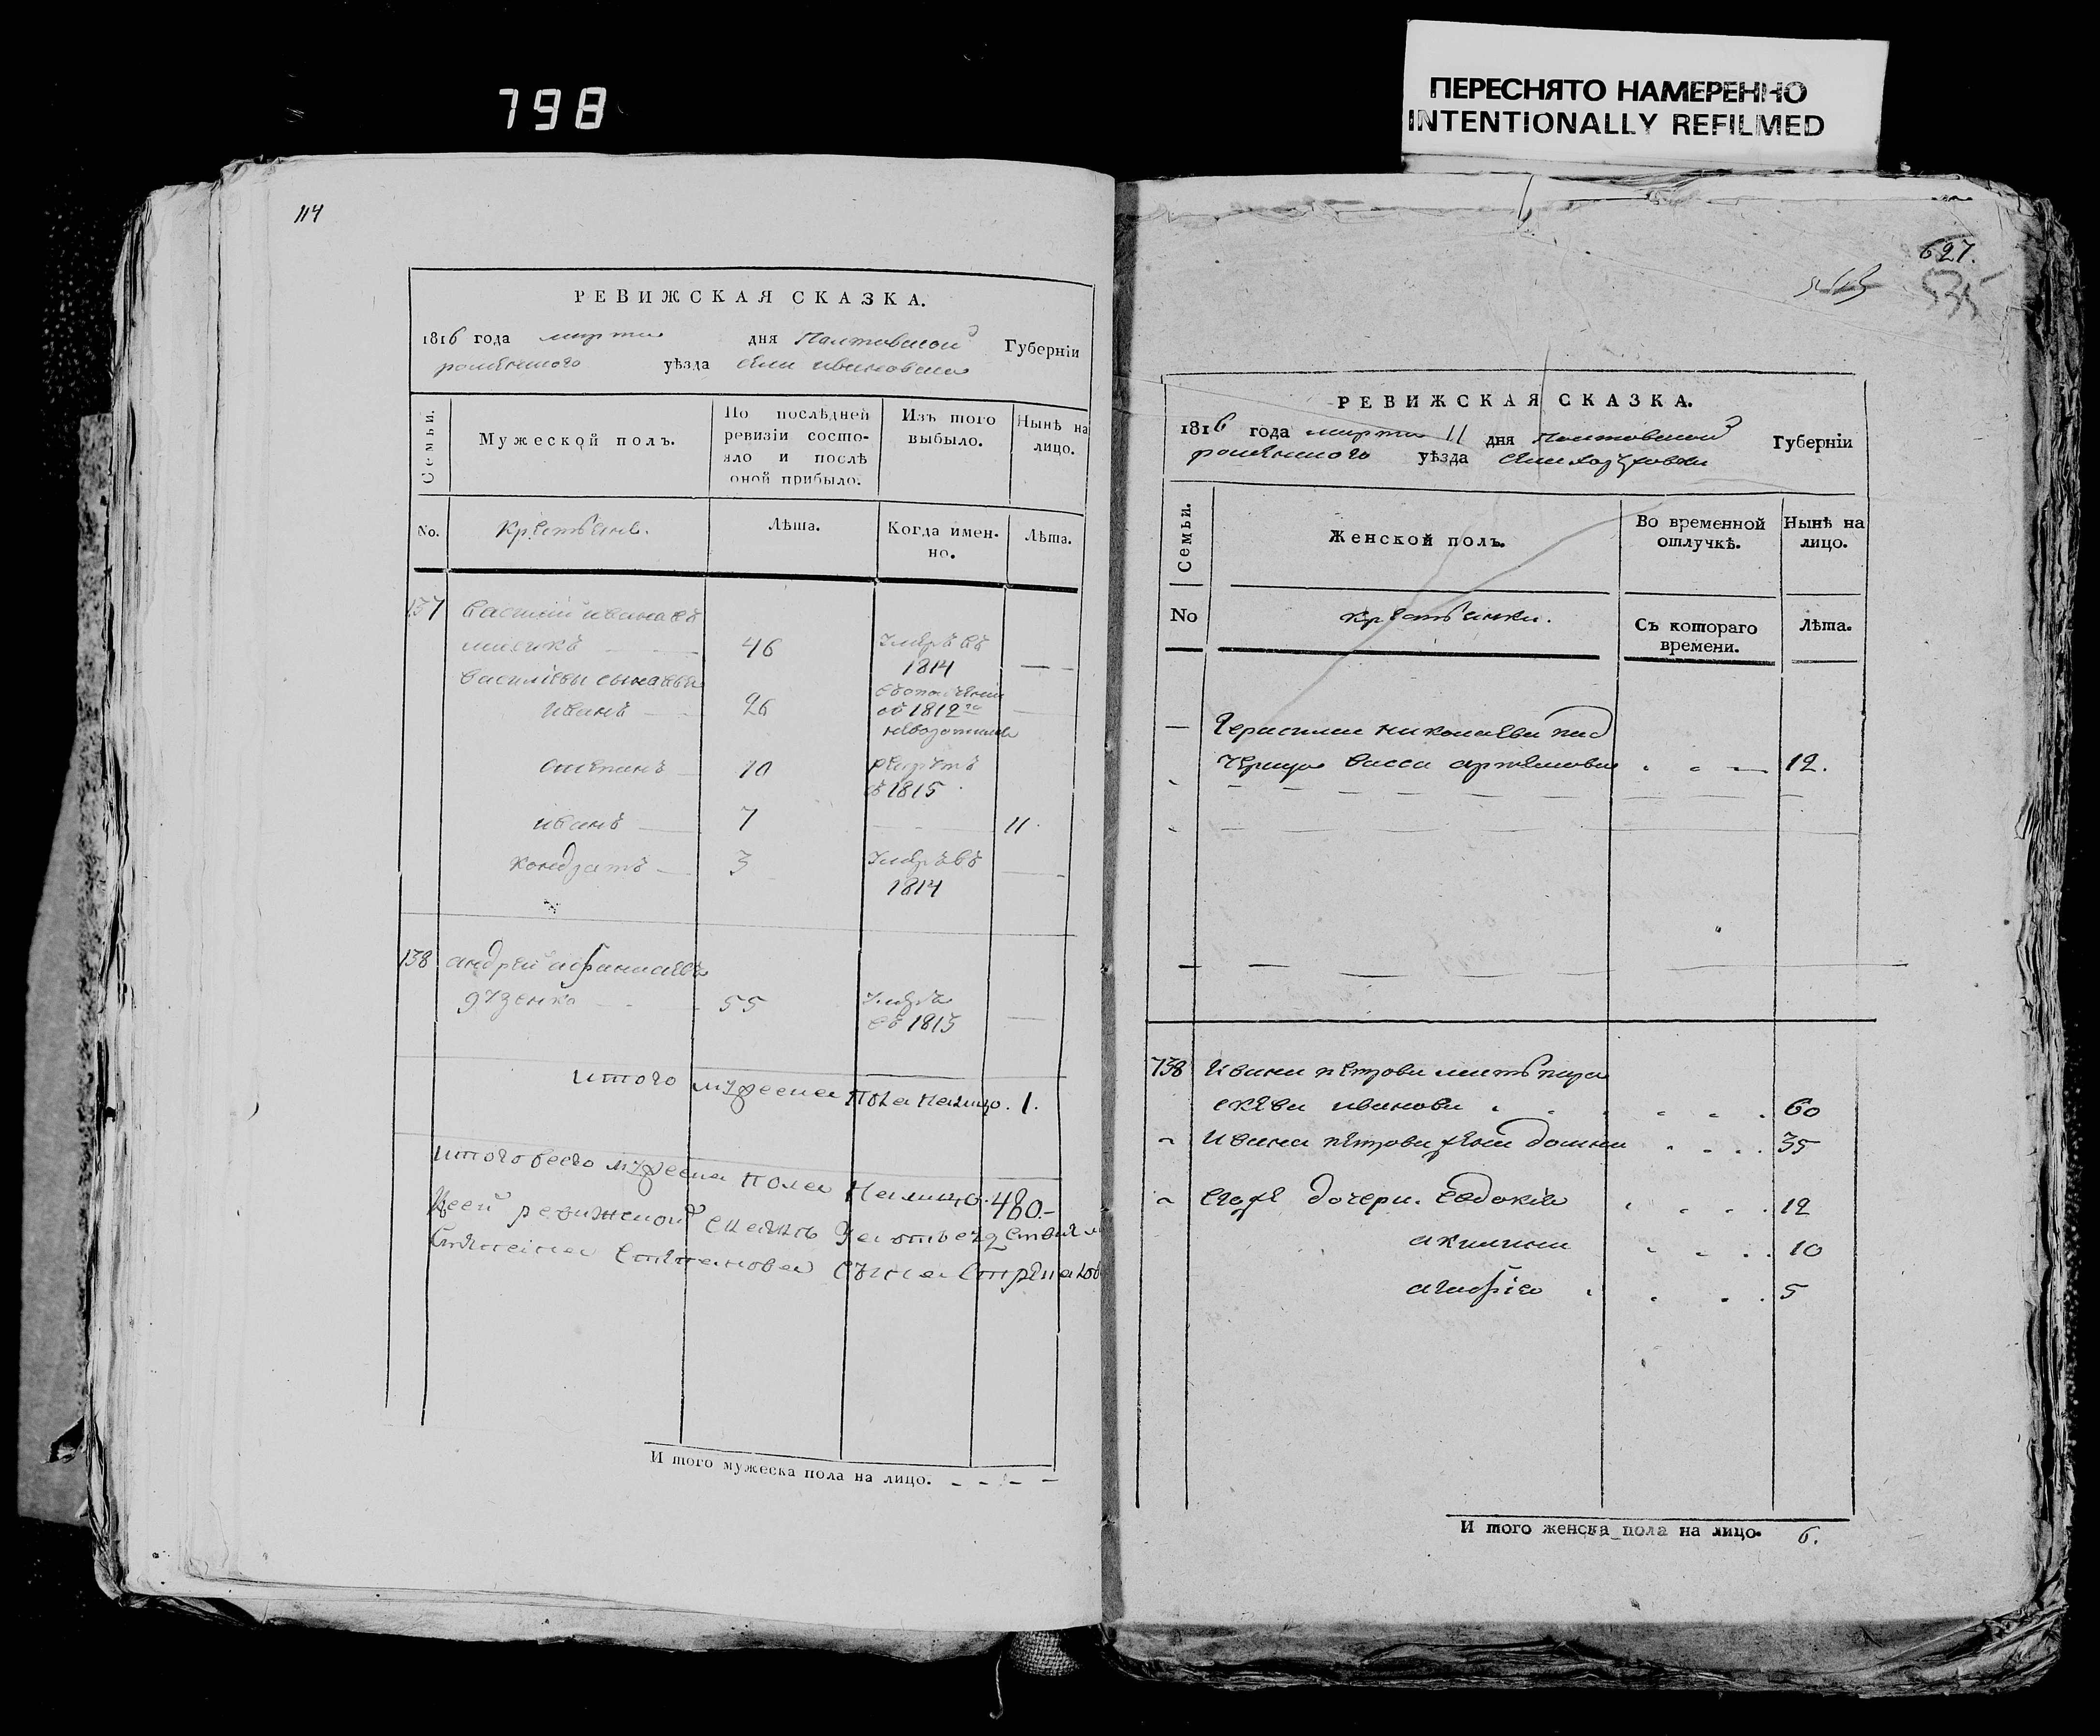 798
ПЕРЕСНЯТО НАМЕРЕННО
INTENTIONALLY REFILMED
114
РЕВИЖСКАЯ СКАЗКА.
1816 года марта дня Полтавской Губерніи
роменского уѣзда села ивановки
Семьи.
Мужеской полъ.
По послѣдней ревизіи состояло и послѣ оной прибыло.
Изъ того выбыло.
Нынѣ на лицо.
No.
Крестьяне.
Лѣта.
Когда именно.
Лѣта.
137 василий ивановъ
46 умре въ
1814
василіевы сыновья
иванъ 26 въ 1812го
степанъ 10
въ 1815
иванъ 7 11
кондратъ 3 умре въ
1814
138 андрей афанасиевъ
яценко 55 умре
въ 1813
итого мужеска пола налицо. 1.
итого всего мужеска пола налицо. 480.
сей ревижской
степанова сына
И того мужеска пола на лицо.
627.
535
РЕВИЖСКАЯ СКАЗКА.
1816 года марта 11 дня Полтавской Губерніи
роменского уѣзда села
Семьи.
Женской полъ.
Во временной отлучкѣ.
Нынѣ на лицо.
No
крестьянки.
Съ котораго времени.
Лѣта.
Герасима николаева пад
черица васса артемова 12.
138 Ивана петрова мать пара
скева иванова 60
Ивана петрова жена домна 35
егоже дочери. Евдокія 12
акилина 10
агафія 5
И того женска пола на лицо. 6.